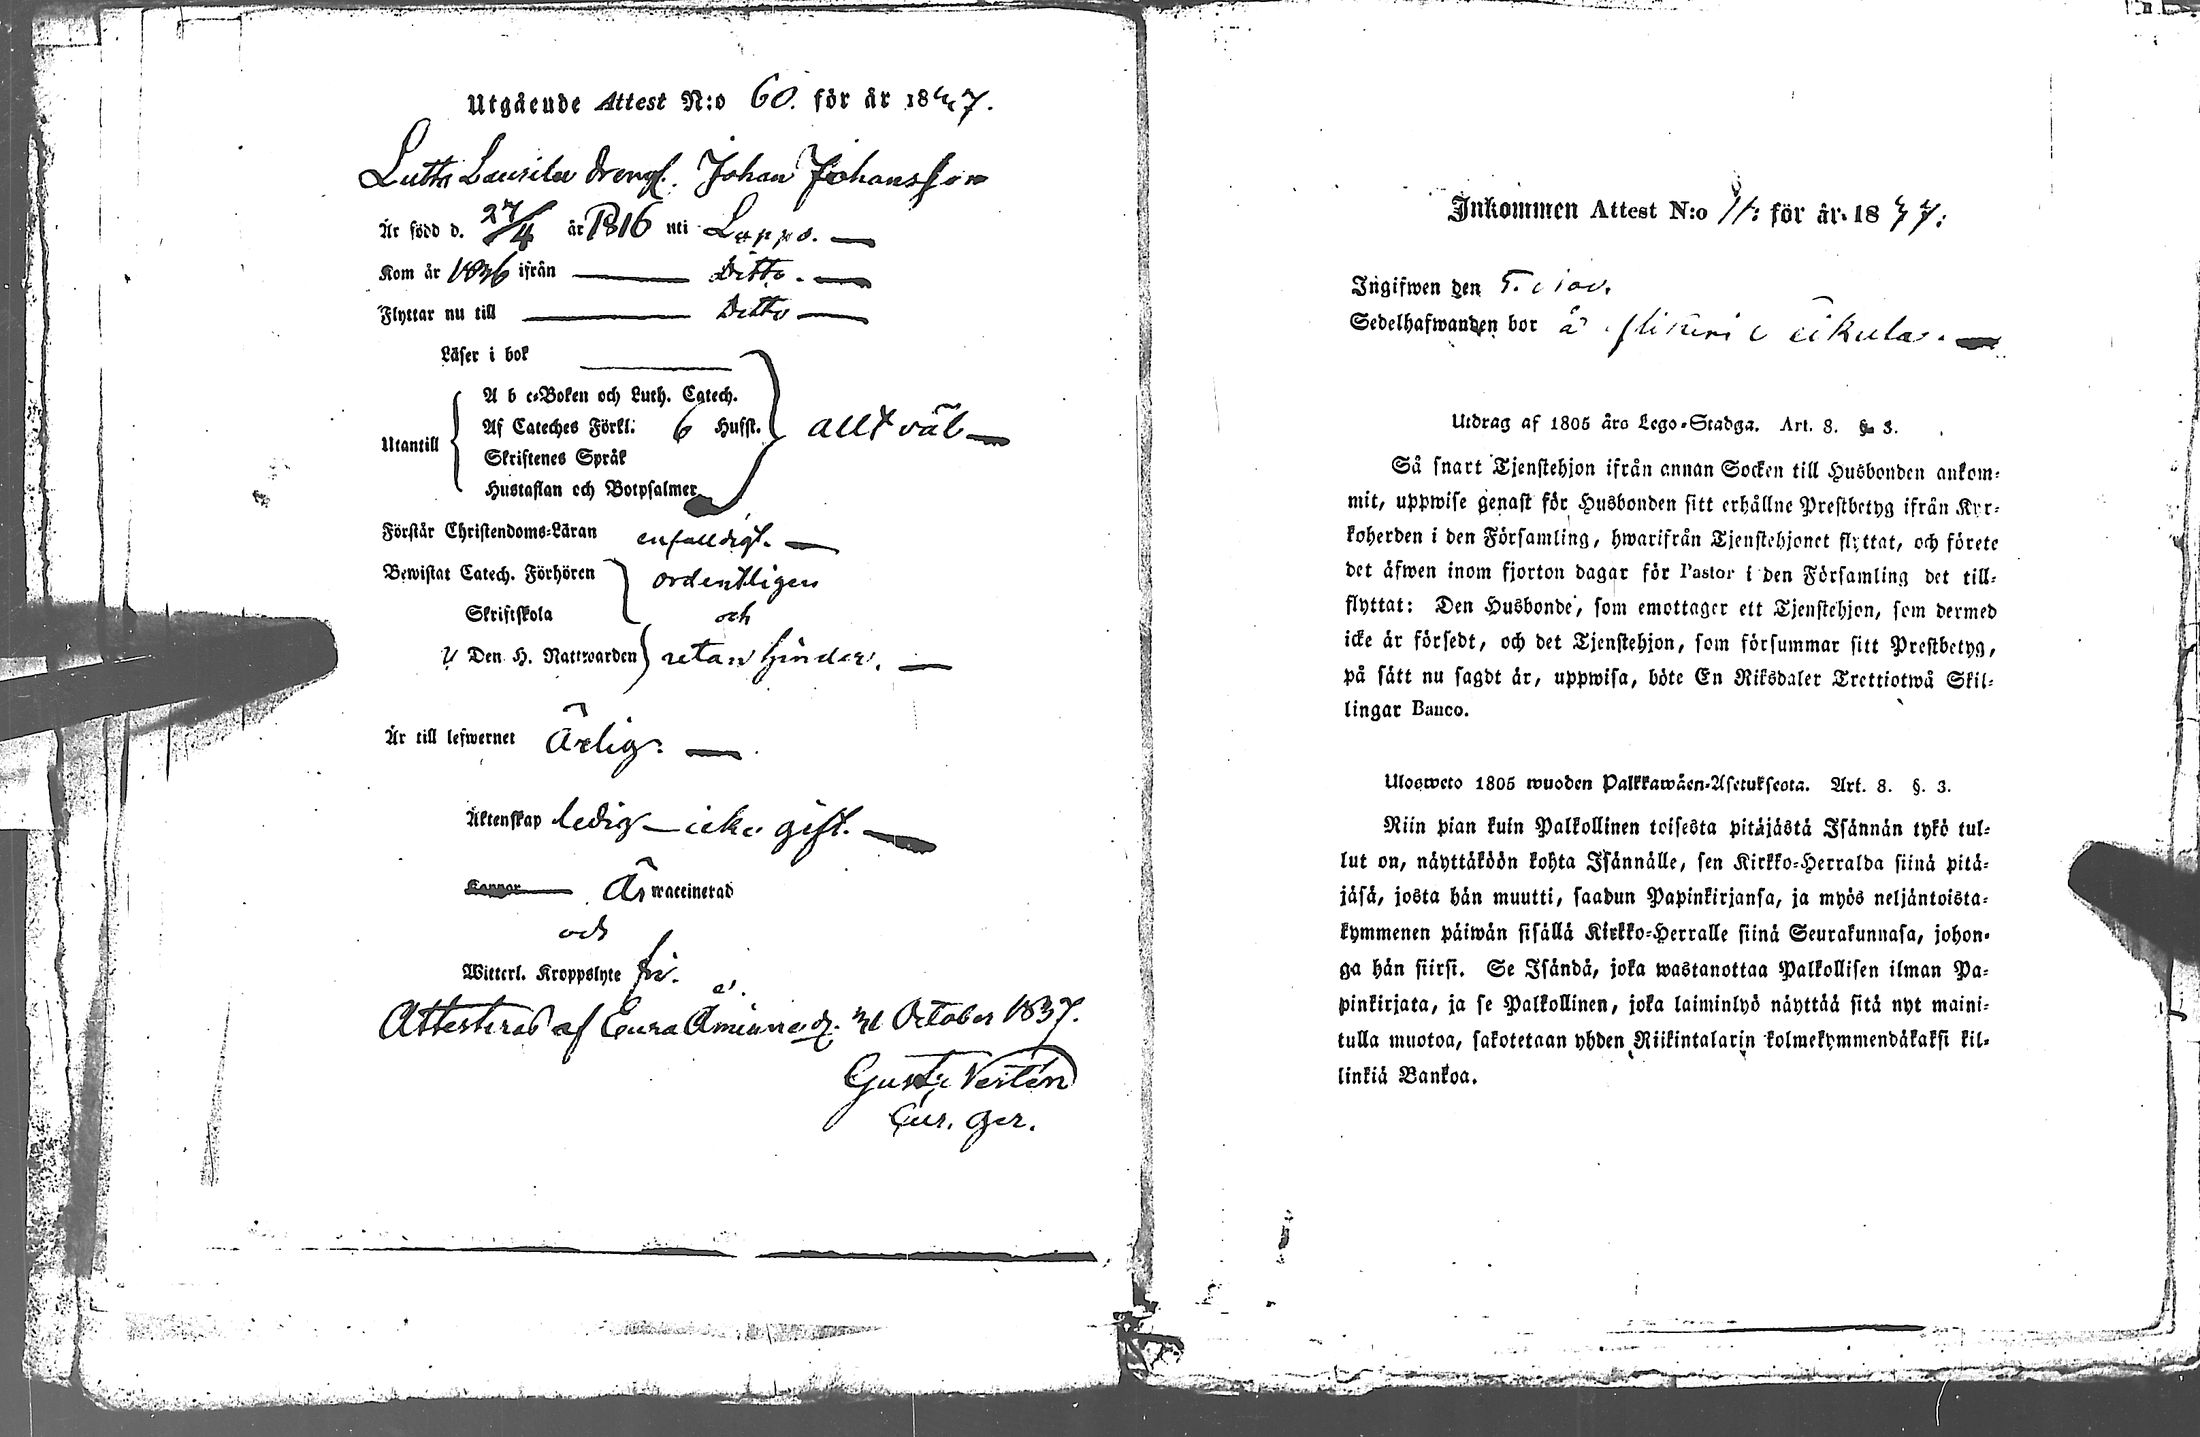 Utgående Attest N:o 60. för år 1837.
Luttu Laurila drengl. Johan Johansson
Är född d. 27/4 år 1816 uti Lappo. —
Kom år 1836 ifrån — Ditto. —
Flyttar nu till — Ditto —
Läser i bok
A b c-Boken och Luth. Catech.
Af Cateches Förkl. 6 Hufst.
Utantill
allt väl —
Skriftenes Språk
Hustaflan och Botpsalmer
Förstår Christendoms-Läran enfalldigt. —
Bewistat Catech. Förhören ordentligen
Skriftskola och
Den H. Nattwarden utan hinder. —
Är till lefwernet Ärlig. —
Äktenskap ledig — icke gift. —
Koppor Är waccinerad
och
Witterl. Kroppslyte fri.
Attesteras af Eura Åminne d. 31 October 1837.
Gust. Vestén
Cur. Ger.
Inkommen Attest N:o 91: för år 1837:
Ingifwen den 5. Nov.
Sedelhafwanden bor å
Utdrag af 1805 års Lego-Stadga. Art. 8. §. 3.
Så snart Tjenstehjon ifrån annan Socken till Husbonden ankom-
mit, uppwise genast för Husbonden sitt erhållne Prestbetyg ifrån Kyr-
koherden i den Församling, hwarifrån Tjenstehjonet flyttat, och förete
det äfwen inom fjorton dagar för Pastor i den Församling det till-
flyttat: Den Husbonde, som emottager ett Tjenstehjon, som dermed
icke är försedt, och det Tjenstehjon, som försummar sitt Prestbetyg,
på sätt nu sagdt är, uppwisa, böte En Riksdaler Trettiotwå Skil-
lingar Banco.
Ulosweto 1805 wuoden Palkkawäen-Asetuksesta. Art. 8. §. 3.
Niin pian kuin Palkollinen toisesta pitäjästä Isännän tykö tul-
lut on, näyttäköön kohta Isännälle, sen Kirkko-Herralda siinä pitä-
jäsä, josta hän muutti, saadun Papinkirjansa, ja myös neljäntoista-
kymmenen päiwän sisällä Kirkko-Herralle siinä Seurakunnasa, johon-
ga hän siirsi. Se Isändä, joka wastanottaa Palkollisen ilman Pa-
pinkirjata, ja se Palkollinen, joka laiminlyö näyttää sitä nyt maini-
tulla muotoa, sakotetaan yhden Riikintalarin kolmekymmendäkaksi kil-
linkiä Bankoa.